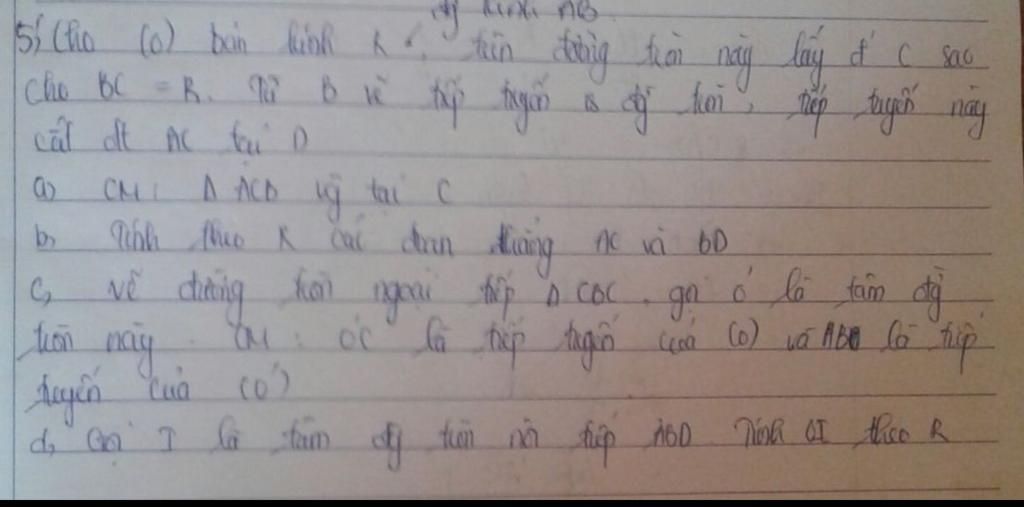 đg kính AB
5) Cho (O) bán kính R, trên đường tròn này lấy đ' C sao
cho BC = R. Từ B vẽ tiếp tuyến đg tròn, tiếp tuyến này
cắt đt AC tại D
a) CM: Δ ACB vg tại C
b, Tính theo R các đoạn thẳng AC và BD
c, vẽ đường tròn ngoại tiếp Δ gọi O' là tâm đg
tròn này. CM: O'C là tiếp tuyến của (O) và AB là tiếp
tuyến của (O')
d, Gọi I là tâm đg tròn nội tiếp ABD Tính OI theo R